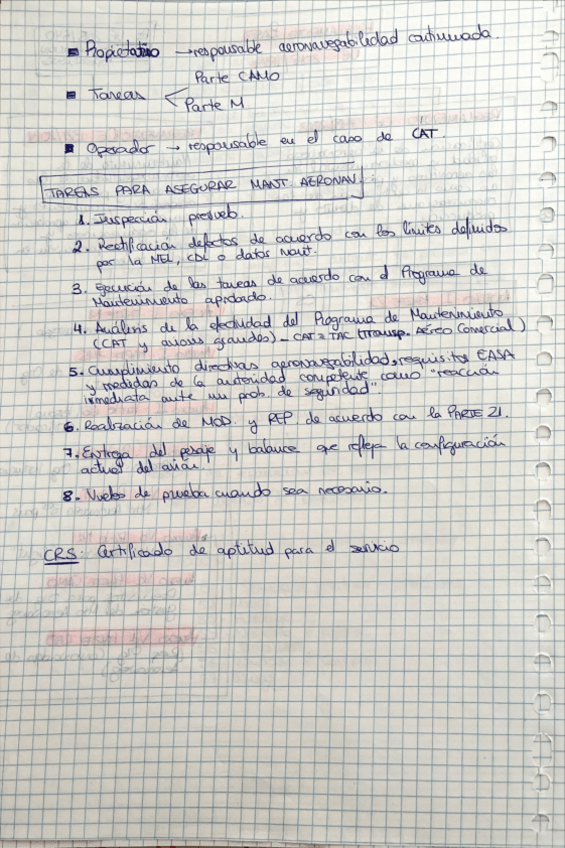 Propietario → responsable aeronavegabilidad continuada.
Parte CAMO
Tareas <
Parte M
Operador → responsable en el caso de CAT.
TAREAS PARA ASEGURAR MANT. AERONAV.:
1. Inspección prevuelo.
2. Rectificación defectos de acuerdo con los límites definidos
por la MEL, CDL o datos mant.
3. Ejecución de las tareas de acuerdo con el Programa de
Mantenimiento aprobado.
4. Análisis de la efectividad del Programa de Mantenimiento
(CAT y aviones grandes) - CAT = TAC (Transp. Aéreo Comercial)
5. Cumplimiento directivas aeronavegabilidad, requisitos EASA
y medidas de la autoridad competente como "reacción
inmediata ante un prob. de seguridad".
6. Realización de MOD. y REP. de acuerdo con la PARTE 21.
7. Entrega del pesaje y balance que refleja la configuración
actual del avión
8. Vuelos de prueba cuando sea necesario.
CRS: Certificado de aptitud para el servicio